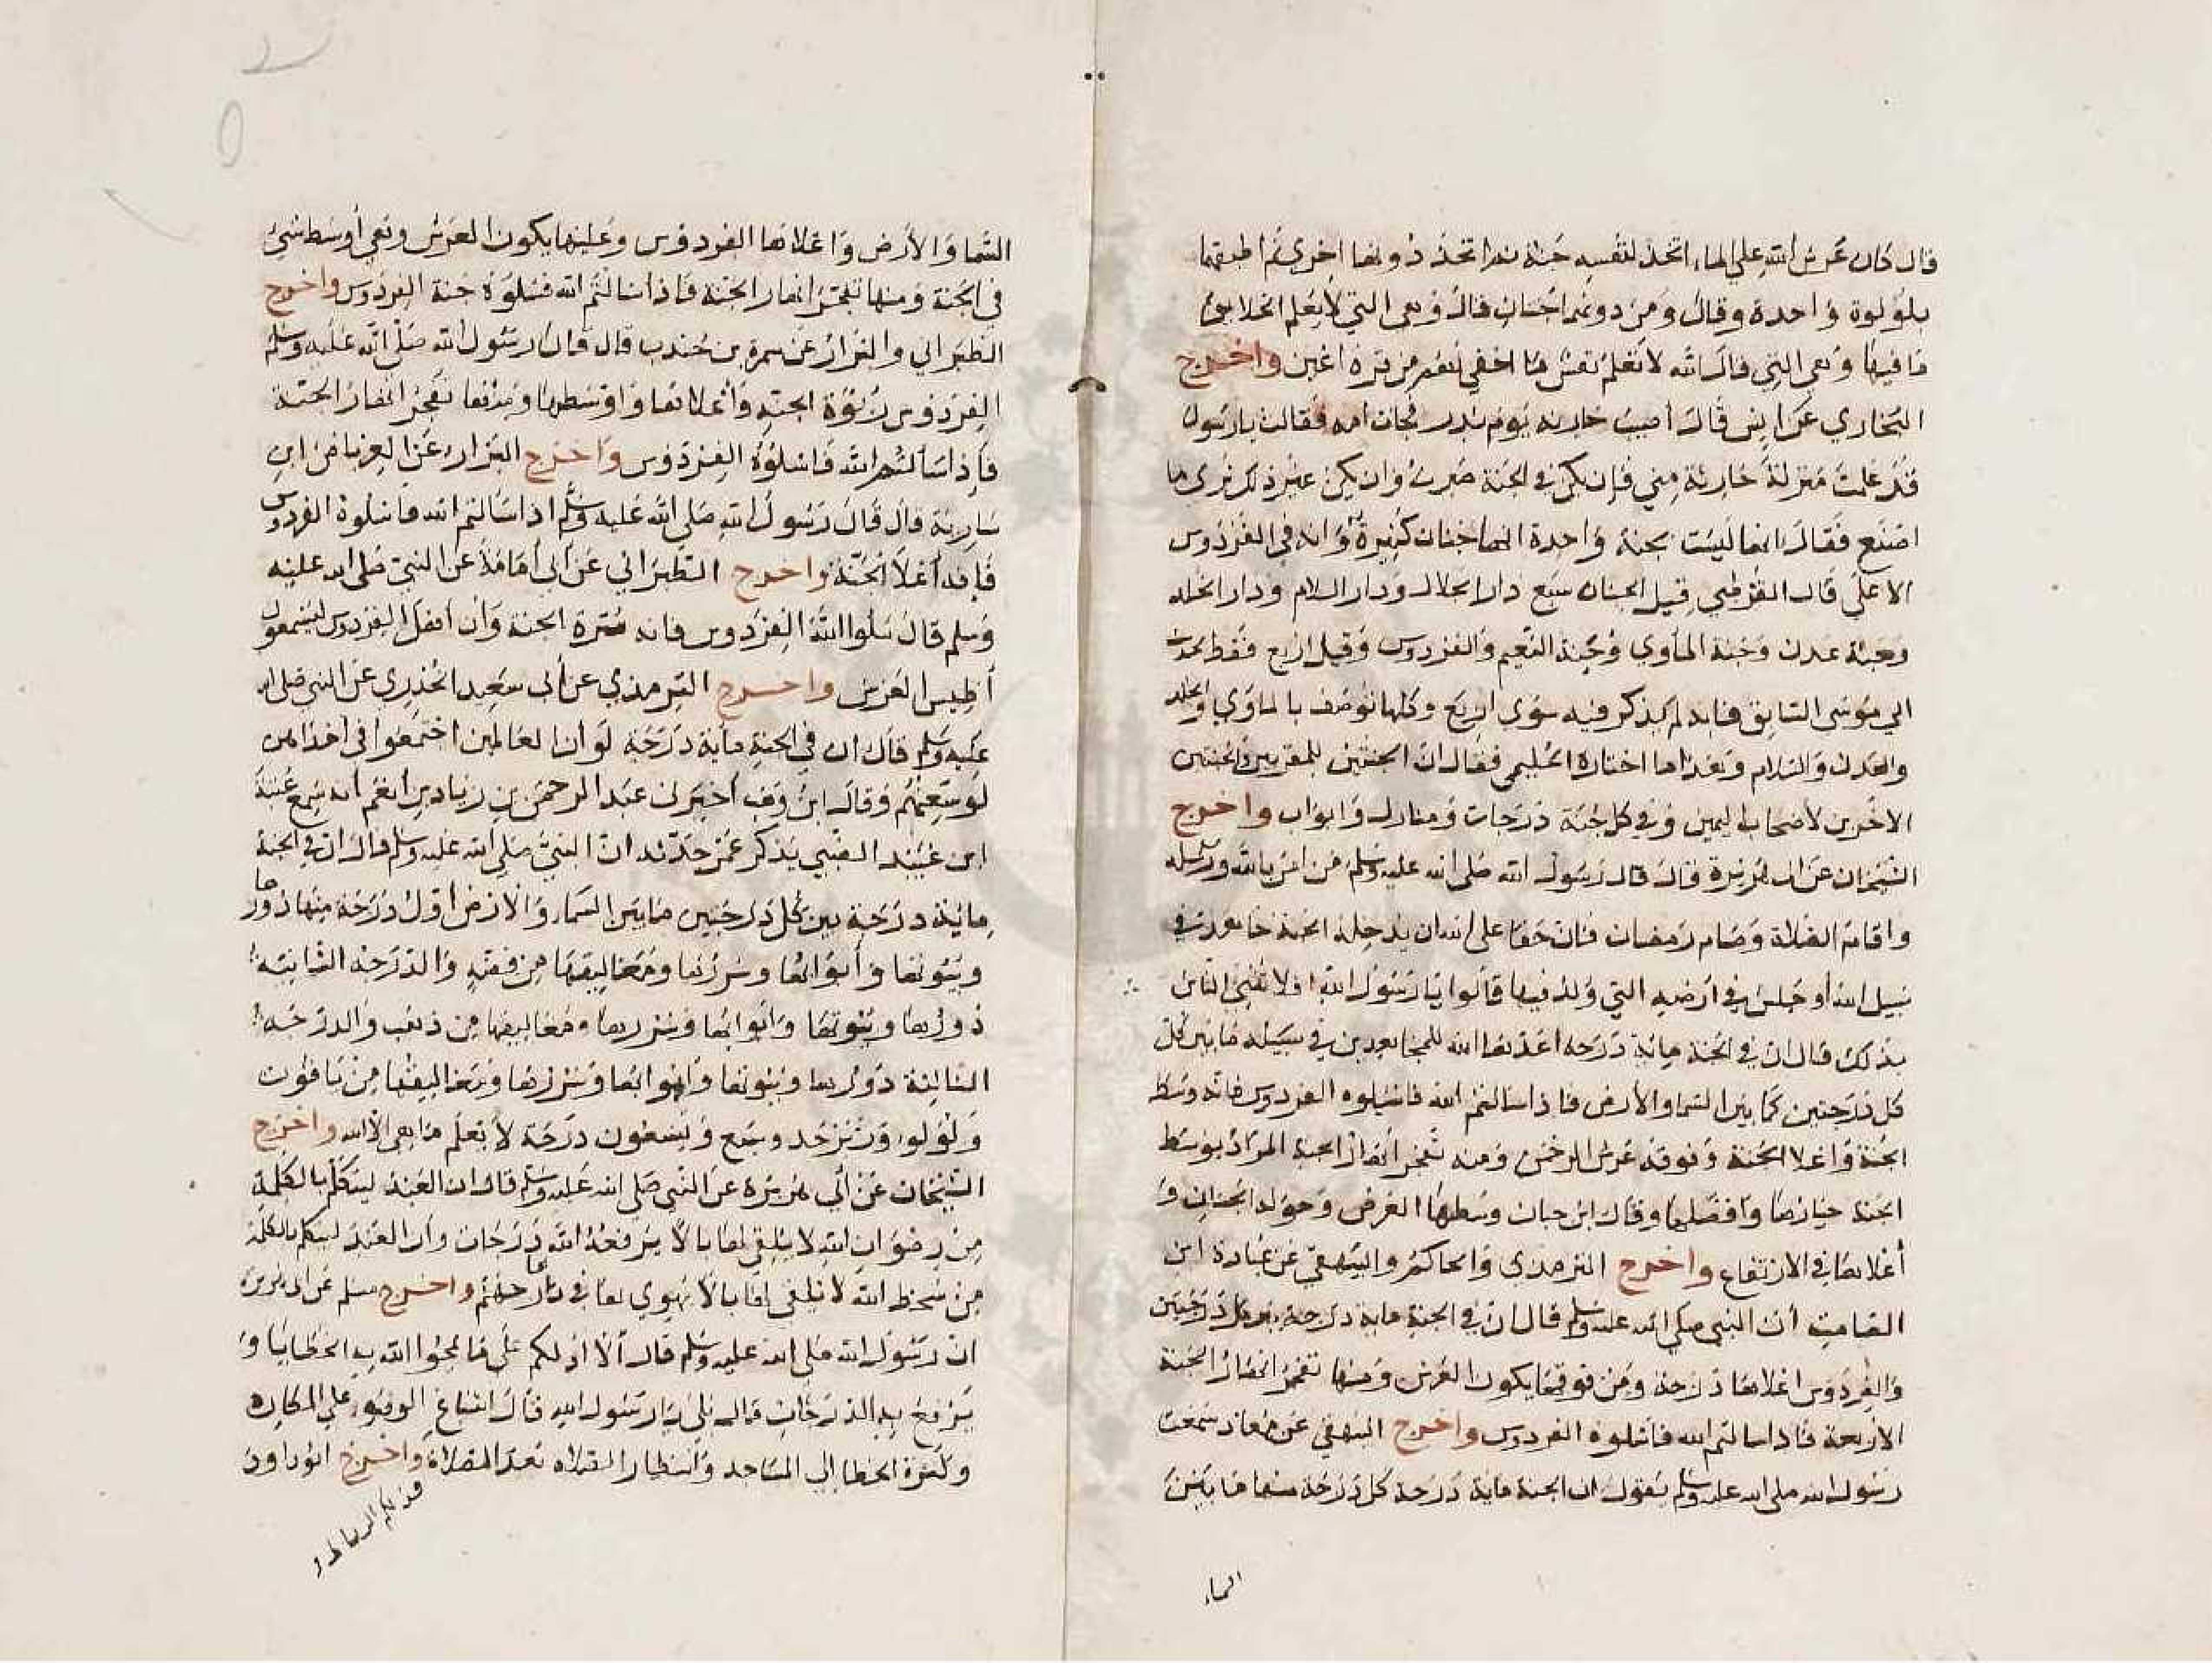 قال كان عرش الله علي الماء اتخذ لنفسه جنة ثم اتخذ دونها اخري ثم اطبقهما
بلولوة واحدة وقال ومن دونهما جنتان قال وهي التي لا يعلم الخلايق
ما فيها وهي التي قال الله لا تعلم نفس ما اخفي لهم من قرة اعين واخرج
البخاري عن انس قال أصيب حارثه يوم بدر فجات امه فقالت يا رسول
قد علمت منزلة حارثة مني فإن يكن في الجنة صبرت وان يكن غير ذلك تري ما
اصنع فقال انها ليست بجنة واحدة انها جنات كثيرة وانه في الفردوس
الاعلي قال القرطبي قيل الجنان سبع دار الجلال ودار السلام ودار الخلد
وجنة عدن وجنة المأوي وجنة النعيم والفردوس وقيل اربع فقط لحديث
ابي موسي السابق فانه لم يذكر فيه سوي اربع وكلها توصف بالماوي والخلد
والعدن والسلام وهذا ما اختاره الحليمي فقال ان الجنتين للمقربين والجنتين
الاخرين لأصحاب اليمين وفي كل جنة درجات ومنازل وابواب واخرج
الشيخان عن ابي هريرة قال قال رسول الله صلي الله عليه وسلم من امن بالله ورسله
واقام الصلاة وصام رمضان كان حقا علي الله ان يدخله الجنة جاهد في
سبيل الله أو جلس في ارضه التي ولد فيها قالوا يا رسول الله افلا ننبي الناس
بذلك قال ان في الجنة مائة درجه اعدها الله للمجاهدين في سبيله ما بين كل
كل درجتين كما بين السما والارض فاذا سالتم الله فاسئلوه الفردوس فانه وسط
الجنة واعلا الجنة وفوقه عرش الرحمن ومنه تفجر انهار الجنة المراد بوسط
الجنة خيارها وافضلها وقال ابن حبان وسطها العرض وحوله الجنان و
أعلاها في الارتفاع واخرج الترمذي والحاكم والبيهقي عن عبادة ابن
الصامت أن النبي صلي الله عليه وسلم قال ان في الجنة ماية درجة بين كل درجتين
والفردوس اعلاها درجة ومن فوقها يكون العرش ومنها تفجر انهار الجنة
الاربعة فاذا سالتم الله فاسئلوه الفردوس واخرج البيهقي عن معاذ سمعت
رسول الله صلي الله عليه وسلم يقول ان الجنة ماية درجة كل درجة منها ما بين
السماء
السما والارض واعلاها الفردوس وعليها يكون العرش وهي أوسط شيء
في الجنة ومنها تفجر انهار الجنة فاذا سالتم الله فسلوه جنة الفردوس واخرج
الطبراني والبزار عن سمرة بن جندب قال قال رسول الله صلي الله عليه وسلم
الفردوس ربوة الجنة وأعلاها واوسطها ومنها تفجر انهار الجنة
فإذا سألتم الله فاسئلوه الفردوس واخرج البزار عن العرباض ابن
سارية قال قال رسول الله صلي الله عليه وسلم اذا سالتم الله فاسلوه الفردوس
فإنه أعلا الجنة واخرج الطبراني عن أبي أمامة عن النبي صلي الله عليه
وسلم قال سلوا الله الفردوس فانه سرة الجنة وان اهل الفردوس ليسمعون
أطيط العرش واخرج الترمذي عن أبي سعيد الخدري عن النبي صلي الله
عليه وسلم قال ان في الجنة ماية درجة لو ان العالمين اجتمعوا في احداهن
لوسعتهم وقال ابن وهب اخبرني عبد الرحمن بن زياد بن انعم انه سمع عتبة
ابن عبيد الضبي يذكر عمن حدثه ان النبي صلي الله عليه وسلم قال ان في الجنة
مائة درجة بين كل درجتين ما بين السماء والارض اول درجة منها دورها
وبيوتها وأبوابها وسررها ومغاليقها من فضة والدرجة الثانية
دورها وبيوتها وابوابها وسررها ومغاليقها من ذهب والدرجة
الثالثة دورها وبيوتها وأبوابها وسررها ومغاليقها من ياقوت
ولولو وزبرجد وسبع وتسعون درجة لا يعلم ما هي الا الله واخرج
الشيخان عن أبي هريرة عن النبي صلي الله عليه وسلم قال ان العبد ليتكلم بالكلمة
من رضوان الله لا يلقي لها بالا يرفعه الله درجات وأن العبد ليتكلم بالكلمة
من سخط الله لا يلقي لها بالا يهوي بها في نار جهنم واخرج مسلم عن ابي هريرة
ان رسول الله صلي الله عليه وسلم قال ألا ادلكم علي ما يمحوا الله به الخطايا و
يرفع به الدرجات قالوا بلي يا رسول الله قال اسباغ الوضوء علي المكاره
وكثرة الخطا إلي المساجد وانتظار الصلاة بعد الصلاة واخرج ابو داود
فذلكم الرباط